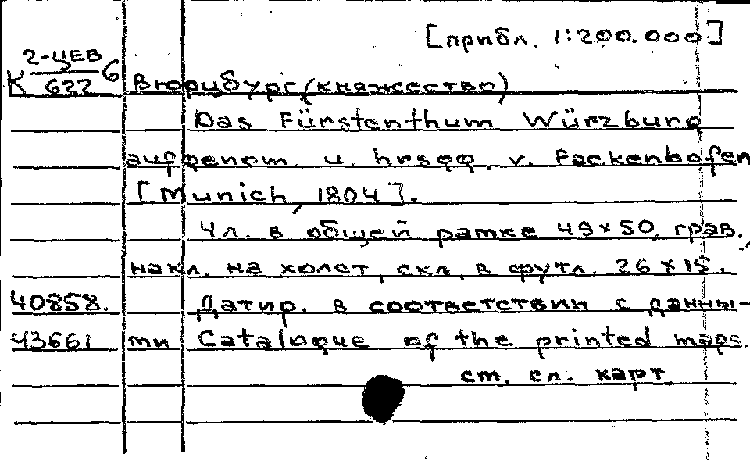 [прибл. 1:200.000]
2-ЦЕВ
К 622 6
Вюрцбург (княжество)
Das Fürstenthum Würzburg
aufgenom. u. hrsgg. v. Fackenhofen
[Munich, 1804].
4 л. в общей рамке 49×50, грав.,
накл. на холст, скл. в футл. 26×15.
40858. Датир. в соответствии с данны-
43661 ми Catalogue of the printed maps.
см. сл. карт.